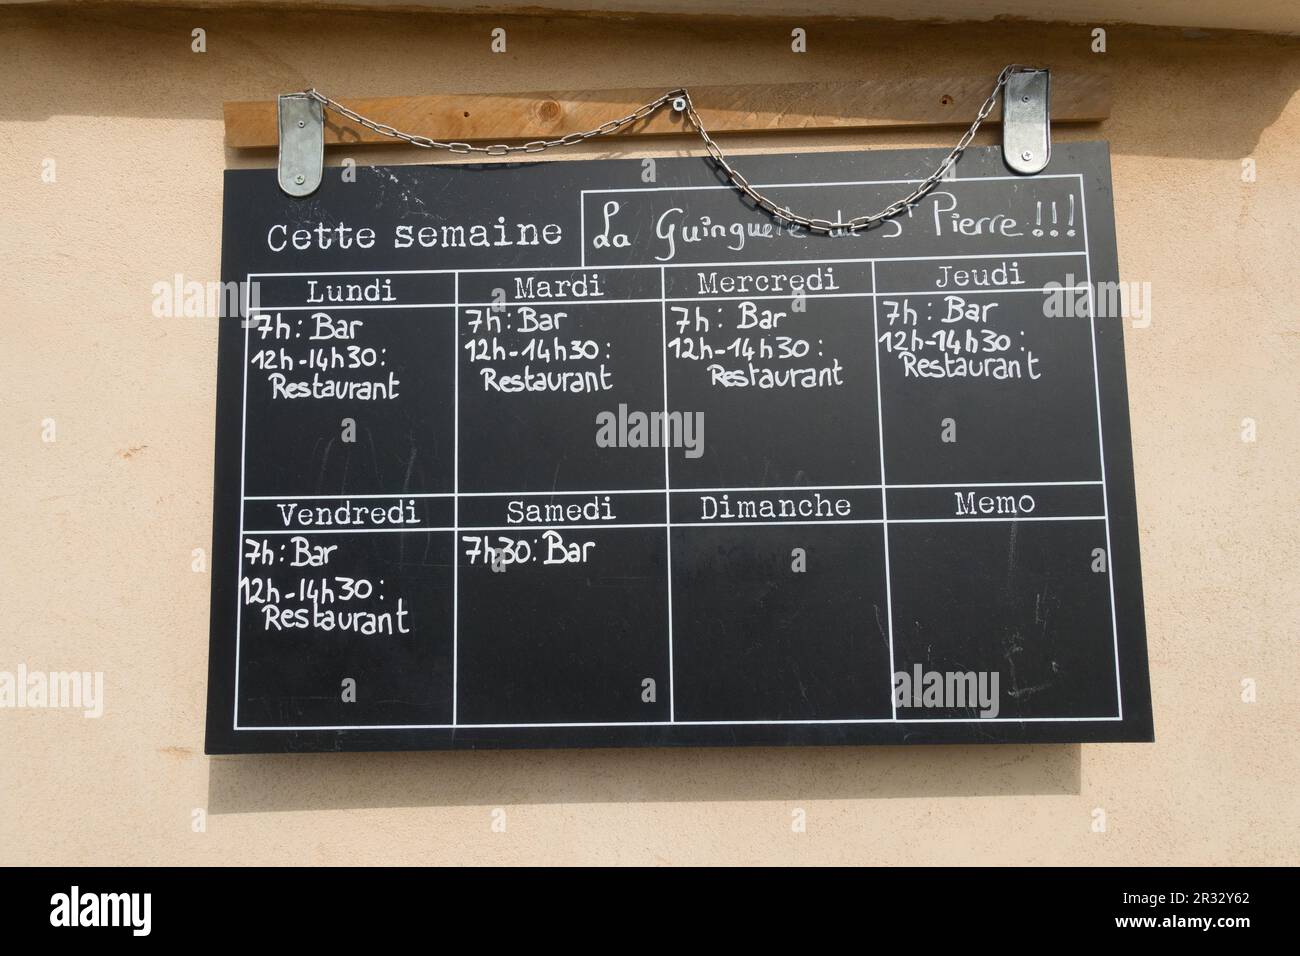 Cette semaine La Guinguette de St Pierre !!!
Lundi Mardi Mercredi Jeudi
7h: Bar
12h-14h30:
Restaurant
7h: Bar
12h-14h30:
Restaurant
7h: Bar
12h-14h30:
Restaurant
7h: Bar
12h-14h30:
Restaurant
Vendredi Samedi Dimanche Memo
7h: Bar
12h-14h30:
Restaurant
7h30: Bar
alamy
alamy
Image ID: 2R33Y62
www.alamy.com